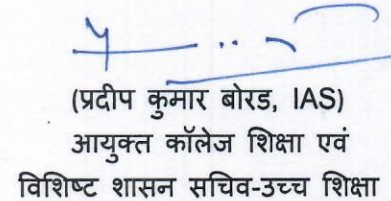 (प्रदीप कुमार बोरड, IAS)
आयुक्त कॉलेज शिक्षा एवं
विशिष्ट शासन सचिव-उच्च शिक्षा